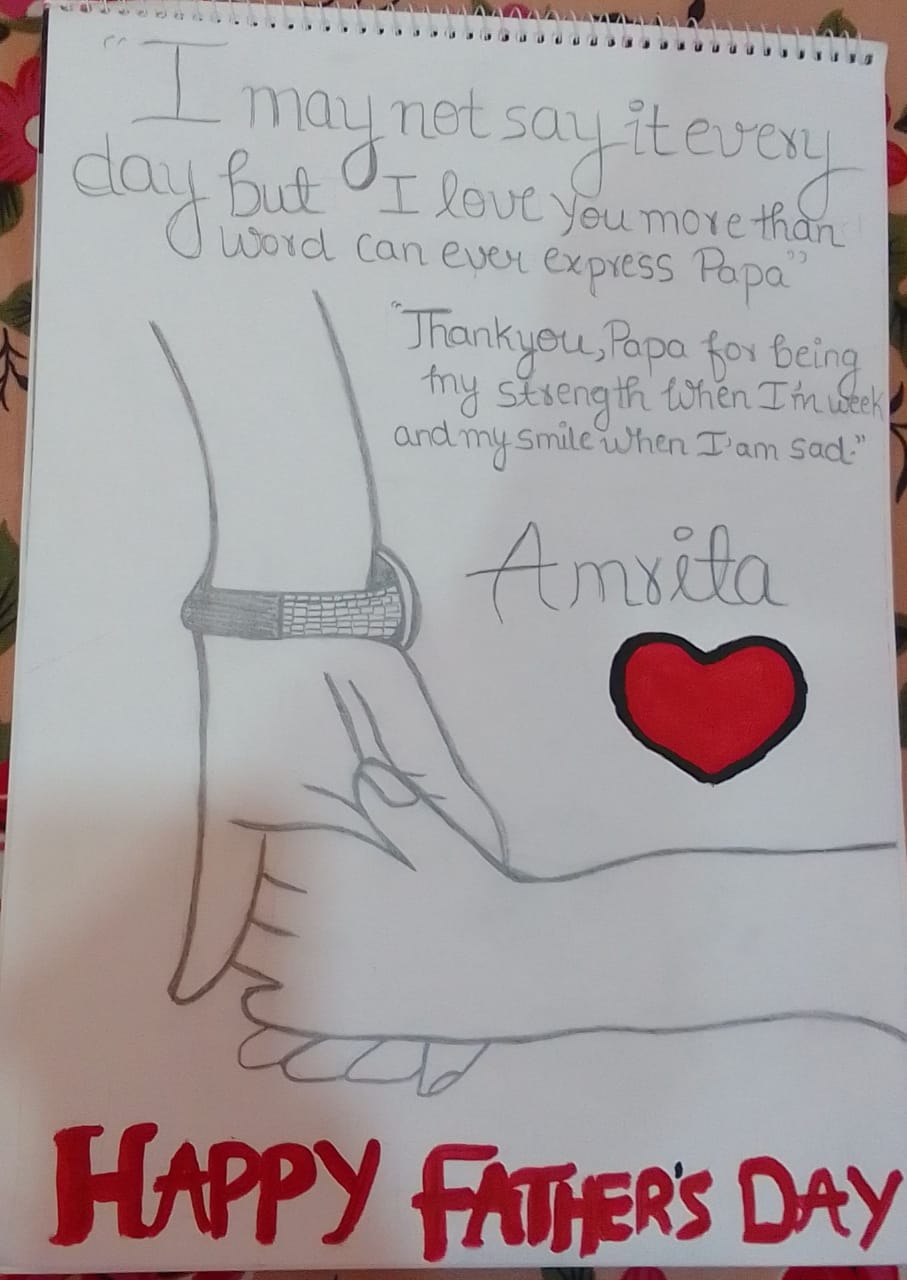 "I may not say it every
day but I love you more than
word can ever express Papa"
"Thank you, Papa for being
my strength when I'm week
and my smile when I'am sad."
Amrita
HAPPY FATHER'S DAY